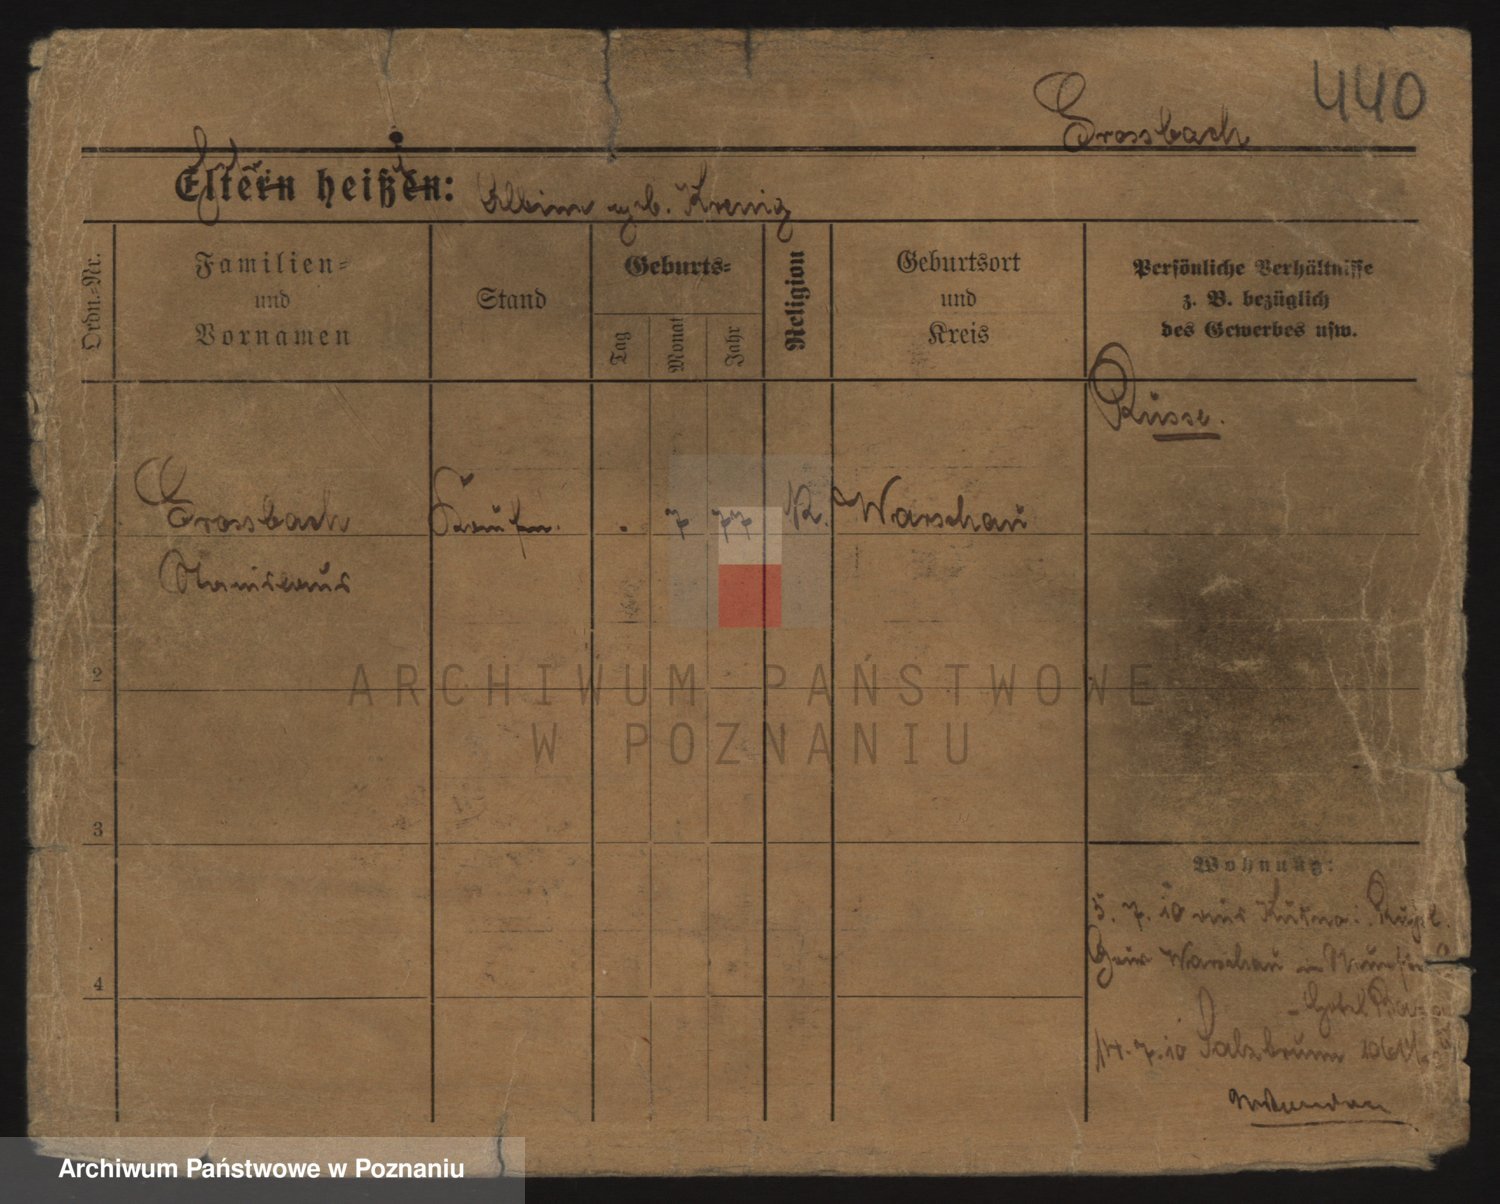 440
Grossbach
Eltern heißen: Albina geb. Krenig
Ordn.-Nr.
Familien-
und
Vornamen
Stand
Geburts-
Tag
Monat
Jahr
Religion
Geburtsort
und
Kreis
Persönliche Verhältnisse
z. B. bezüglich
des Gewerbes usw.
Russe.
Grossbach Kaufm. . 7 77 K. Warschau
Stanislaus
2
ARCHIWUM PAŃSTWOWE
W POZNANIU
3
Wohnung:
5. 7. 10 aus Kutno
Warschau
4
Hotel
14. 7. 10 Salzbrunn
Archiwum Państwowe w Poznaniu